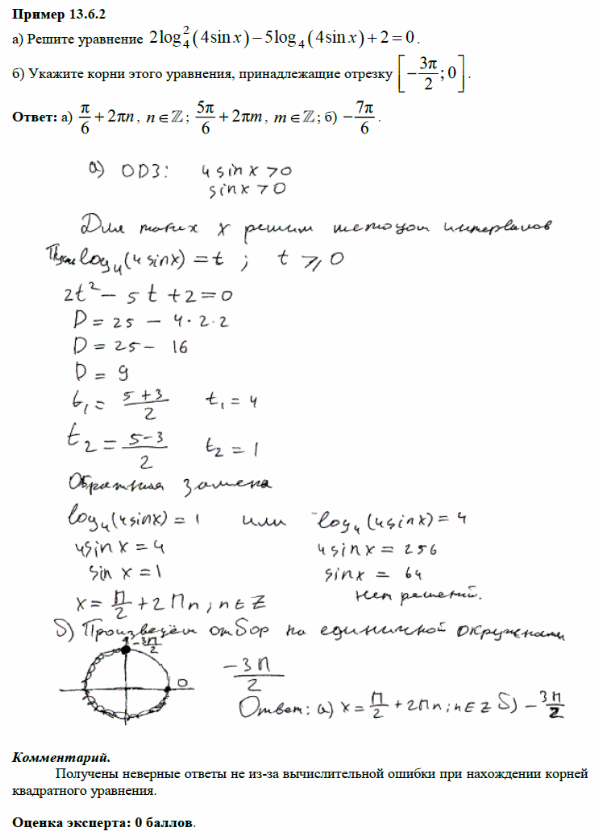 Пример 13.6.2
а) Решите уравнение 2log₄²(4sin x) − 5log₄(4sin x) + 2 = 0.
б) Укажите корни этого уравнения, принадлежащие отрезку [−3π/2; 0].
Ответ: а) π/6 + 2πn, n ∈ ℤ; 5π/6 + 2πm, m ∈ ℤ; б) −7π/6.
а) ОДЗ: 4sinx>0
sinx>0
Для таких x решим методом интервалов
Пусть log₄(4sinx) = t ; t ⩾ 0
2t² − 5t + 2 = 0
D = 25 − 4·2·2
D = 25 − 16
D = 9
t₁ = (5+3)/2 t₁ = 4
t₂ = (5−3)/2 t₂ = 1
Обратная замена
log₄(4sinx) = 1 или log₄(4sinx) = 4
4sinx = 4 4sinx = 256
sin x = 1 sinx = 64
x = П/2 + 2Пn; n∈Z Нет решений.
б) Произведём отбор на единичной окружности
−3П/2
0
−3П/2
Ответ: а) x = П/2 + 2Пn; n∈Z б) −3П/2
Комментарий.
Получены неверные ответы не из-за вычислительной ошибки при нахождении корней
квадратного уравнения.
Оценка эксперта: 0 баллов.